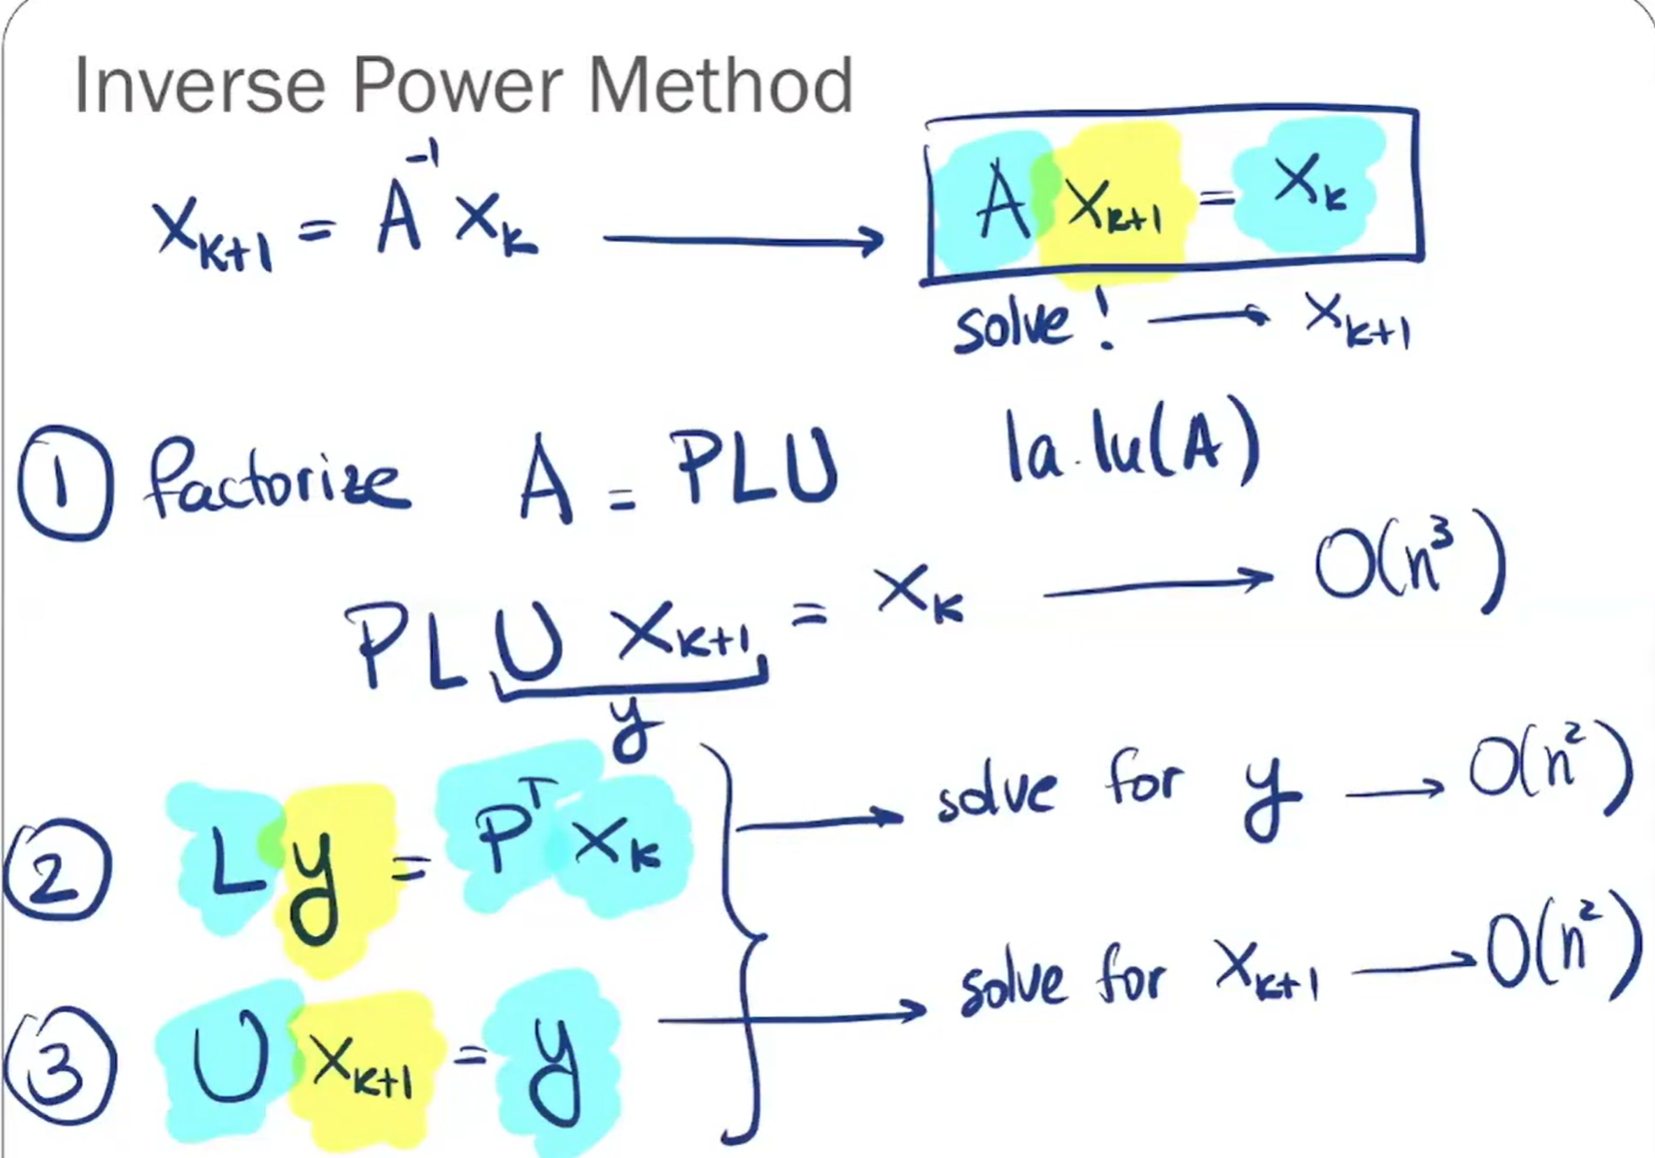 Inverse Power Method
x_{k+1} = A^{-1} x_k ⟶ A x_{k+1} = x_k
solve! → x_{k+1}
① factorize A = PLU la.lu(A)
PLU x_{k+1} = x_k → O(n³)
y
② L y = P^T x_k → solve for y → O(n²)
③ U x_{k+1} = y → solve for x_{k+1} → O(n²)